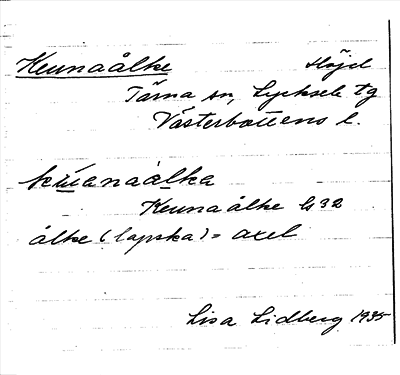 Keunaålke Höjd
Tärna sn, Lycksele tg
Västerbottens l.
kɛ̄ùanaålka
Keunaålke G32
ålke (lapska) = axel
Lisa Lidberg 1935